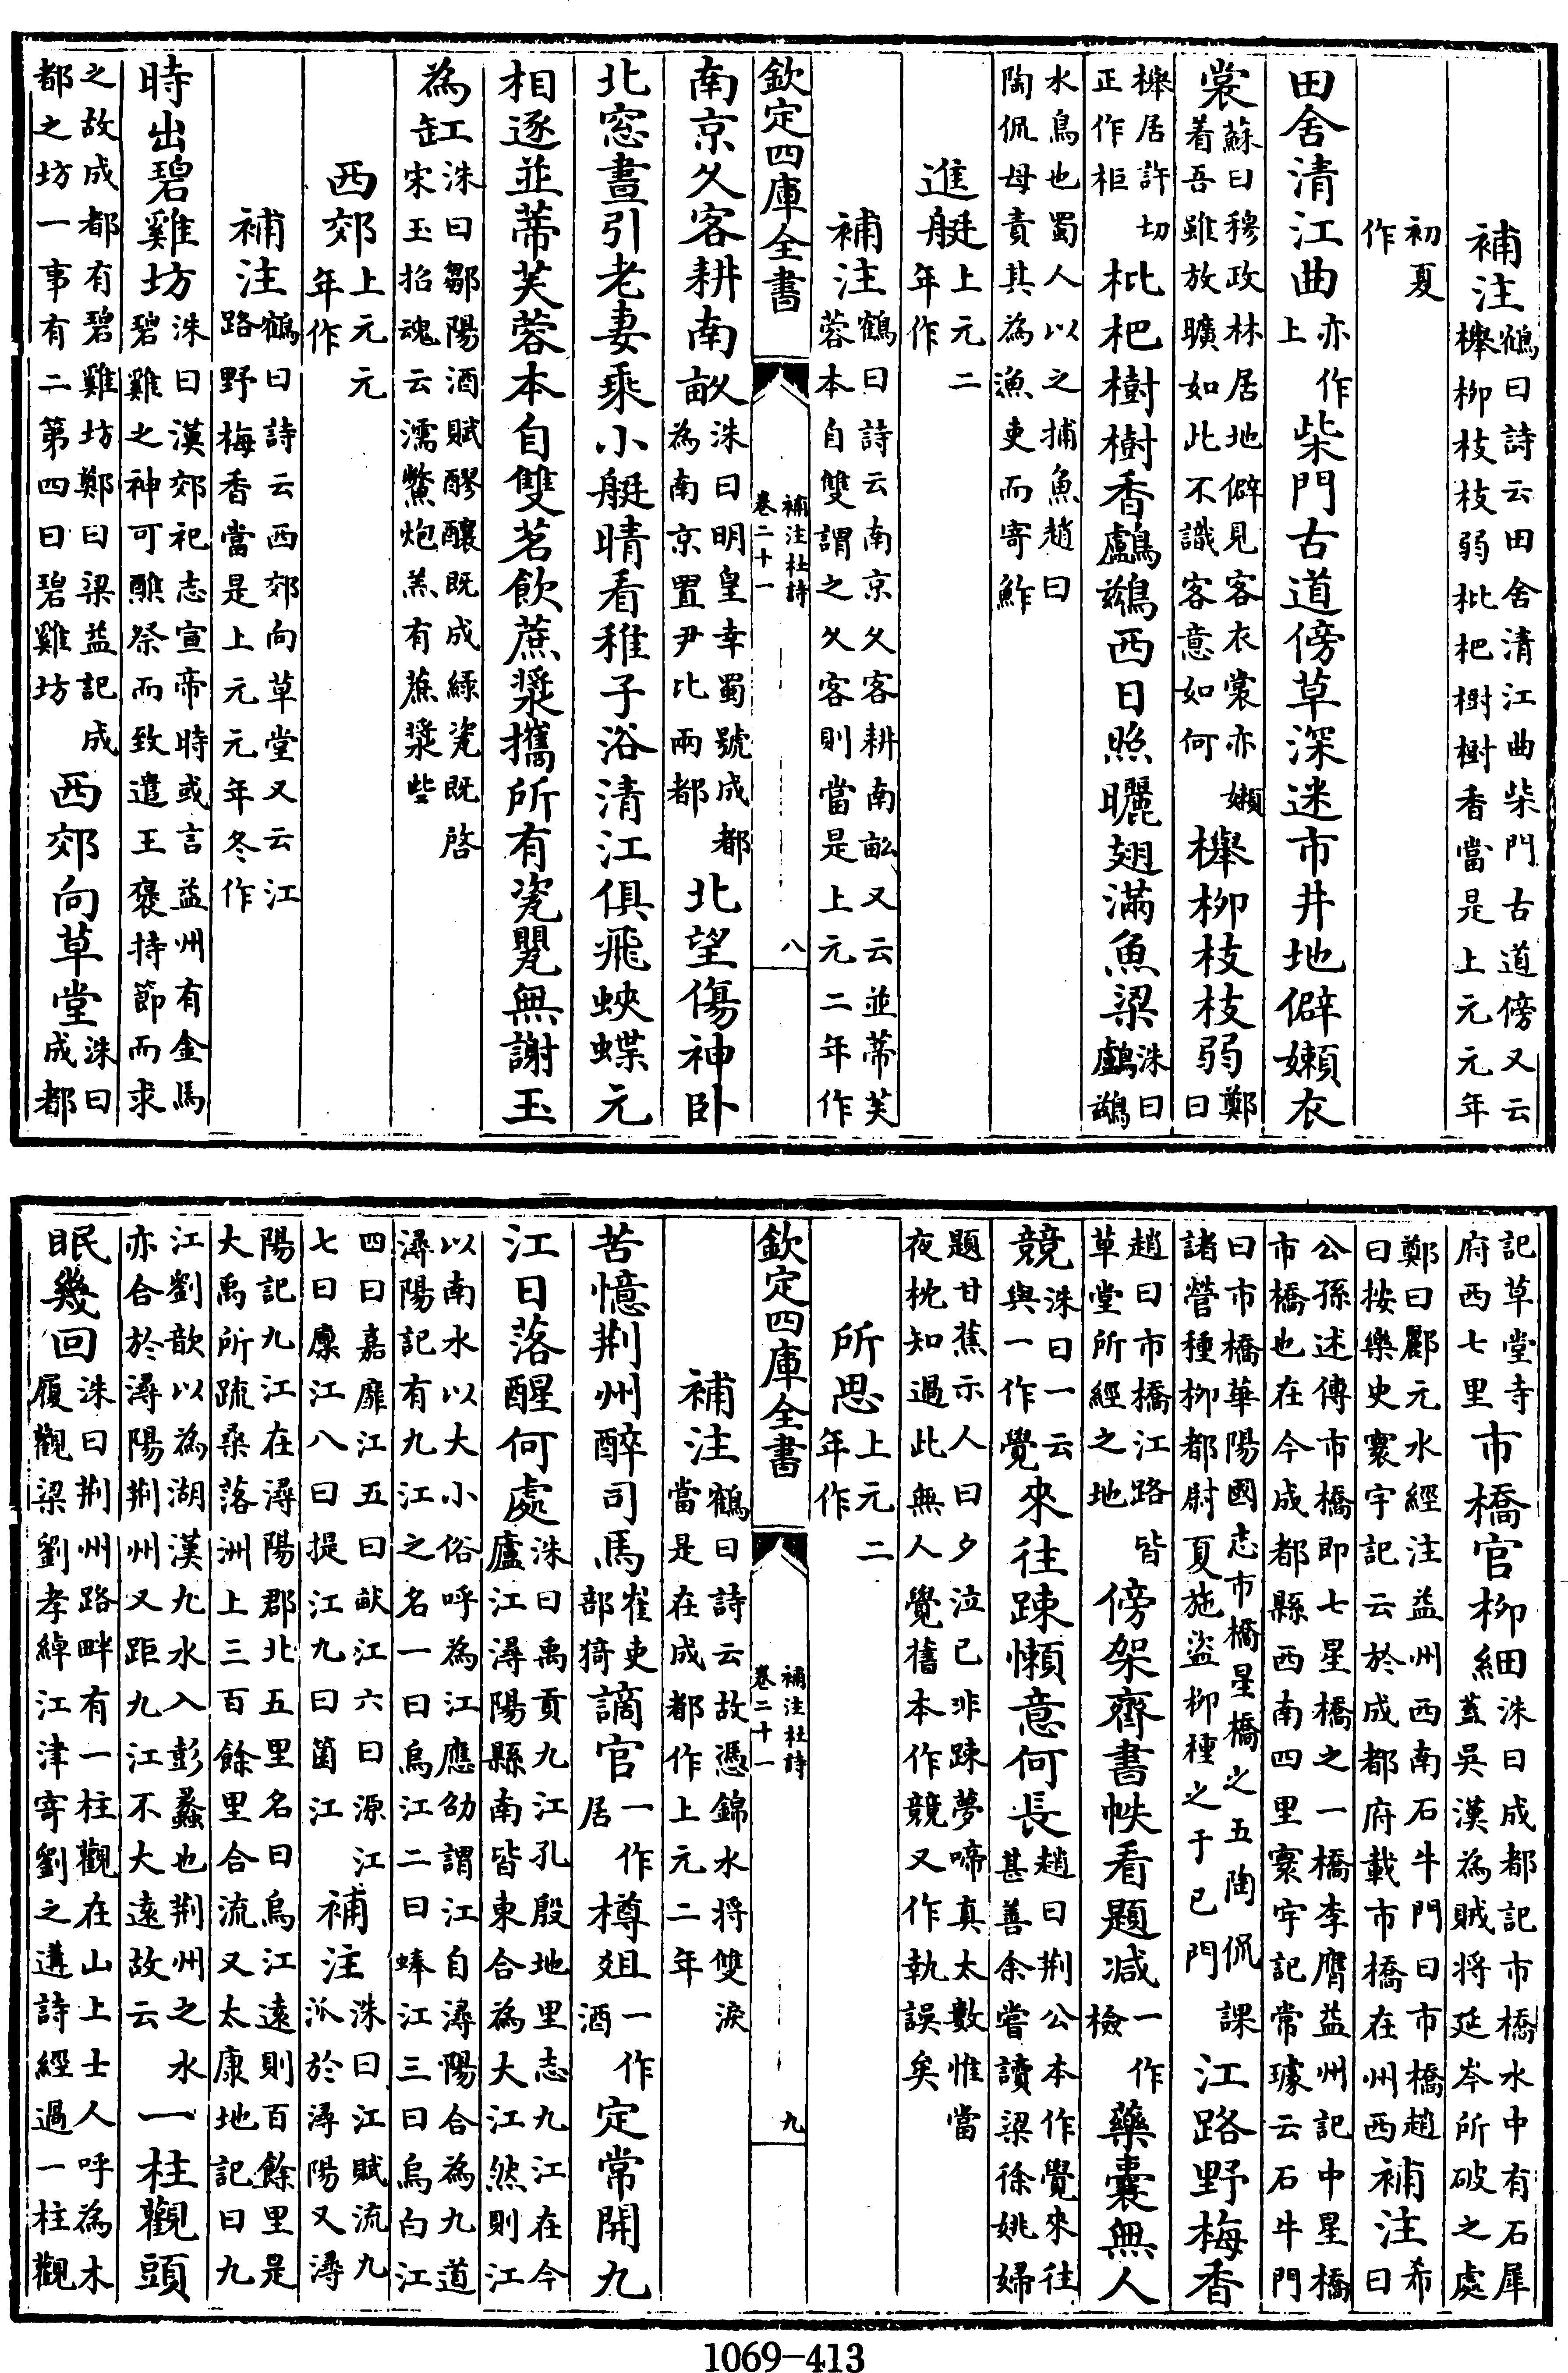 補注鶴曰詩云田舍清江曲柴門古道傍又云櫸柳枝枝弱枇杷樹樹香當是上元元年
初夏作
田舍清江曲亦作上柴門古道傍草深迷市井地僻嬾衣
裳蘇曰穆政林居地僻見客衣裳亦嬾着吾雖放曠如此不識客意如何櫸柳枝枝弱鄭曰
櫸居許切正作柜枇杷樹樹香鸕鷀西日照曬翅滿魚梁洙曰鸕鷀
水鳥也蜀人以之捕魚趙曰陶侃母責其為漁吏而寄鮓
進艇上元二年作
補注鶴曰詩云南京久客耕南畝又云並蒂芙蓉本自雙謂之久客則當是上元二年作
欽定四庫全書 補注杜詩卷二十一 八
南京久客耕南畝洙曰明皇幸蜀號成都為南京置尹比兩都北望傷神卧
北窓晝引老妻乘小艇晴看稚子浴清江俱飛蛺蝶元
相逐並蒂芙蓉本自雙茗飲蔗漿攜所有瓷甖無謝玉
為缸洙曰鄒陽酒賦醪釀既成綠瓷既啓宋玉招魂云濡鱉炮羔有蔗漿些
西郊上元元年作
補注鶴曰詩云西郊向草堂又云江路野梅香當是上元元年冬作
時出碧雞坊洙曰漢郊祀志宣帝時或言益州有金馬碧雞之神可醮祭而致遣王褒持節而求
之故成都有碧雞坊鄭曰梁益記成都之坊一事有二第四曰碧雞坊西郊向草堂洙曰成都
記草堂寺府西七里市橋官柳細洙曰成都記市橋水中有石犀蓋吳漢為賊將延岑所破之處
鄭曰酈元水經注益州西南石牛門曰市橋趙曰按樂史寰宇記云於成都府載市橋在州西補注希曰
公孫述傳市橋即七星橋之一橋李膺益州記中星橋市橋也在今成都縣西南四里寰宇記常璩云石牛門
曰市橋華陽國志市橋星橋之五陶侃課諸營種柳都尉夏施盜柳種之于已門江路野梅香
趙曰市橋江路皆草堂所經之地傍架齊書帙看題減一作檢藥囊無人
競洙曰一云與一作覺來往踈懶意何長趙曰荆公本作覺來往甚善余嘗讀梁徐姚婦
題甘蕉示人曰夕泣已非踈夢啼真太數惟當夜枕知過此無人覺舊本作競又作執誤矣
所思上元二年作
補注鶴曰詩云故憑錦水將雙淚當是在成都作上元二年
欽定四庫全書 補注杜詩卷二十一 九
苦憶荆州醉司馬崔吏部猗謫官一作居樽俎一作酒定常開九
江日落醒何處洙曰禹貢九江孔殷地里志九江在今廬江潯陽縣南皆東合為大江然則江
以南水以大小俗呼為江應劭謂江自潯陽合為九道潯陽記有九江之名一曰烏江二曰蜯江三曰烏白江
四曰嘉靡江五曰畎江六曰源江七曰廩江八曰提江九曰箘江補注洙曰江賦流九派於潯陽又潯
陽記九江在潯陽郡北五里名曰烏江遠則百餘里是大禹所疏桑落洲上三百餘里合流又太康地記曰九
江劉歆以為湖漢九水入彭蠡也荆州之水亦合於潯陽荆州又距九江不大遠故云一柱觀頭
眠幾回洙曰荆州路畔有一柱觀在山上士人呼為木履觀梁劉孝綽江津寄劉之遴詩經過一柱觀
1069-413